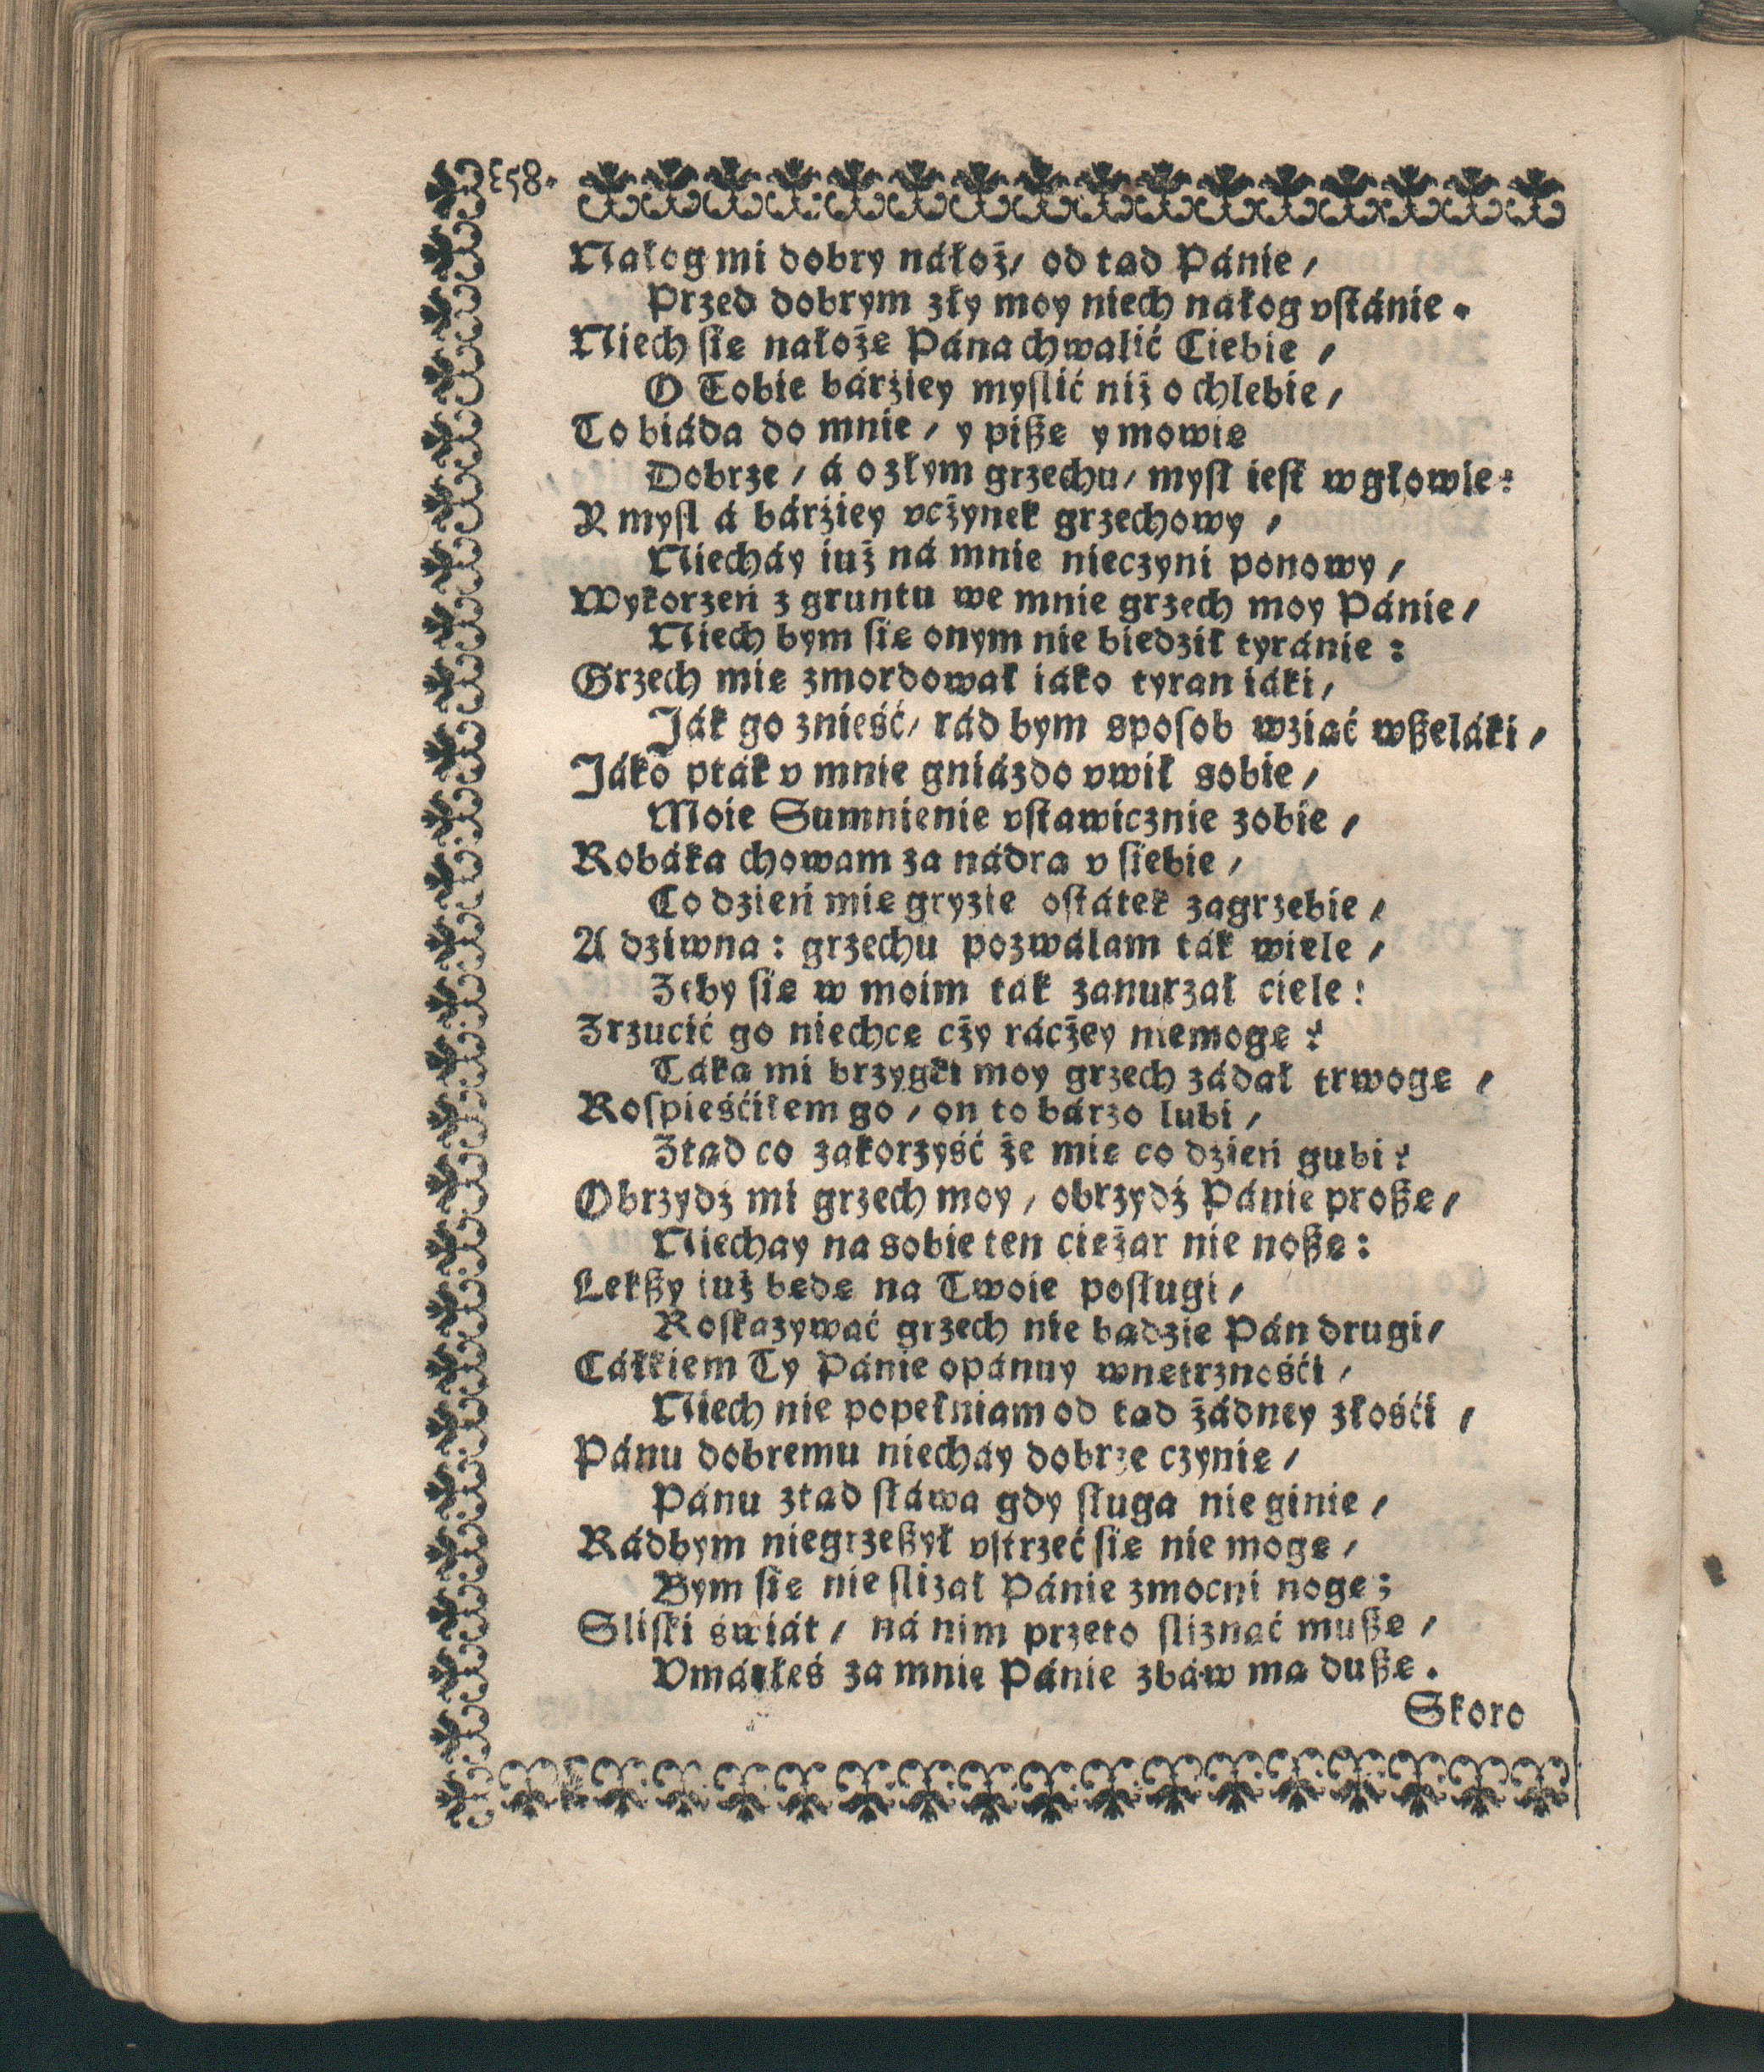 58.
Nałog mi dobry náłoż/ od tąd Pánie/
Przed dobrym zły moy niech nałog vſtánie.
Niech ſię nałożę Páná chwalić Ciebie/
O Tobie bárżiey myſlić niż o chlebie/
To biáda do mnie/ y pißę y mowię
Dobrze/ á o złym grzechu/ myſl ieſt w głowie:
Y myſl á bárżiey vcżynek grzechowy/
Niecháy iuż ná mnie nieczyni ponowy/
Wykorzeń z gruntu we mnie grzech moy Pánie/
Niech bym ſię onym nie biedził tyránie:
Grzech mię zmordował iáko tyran iáki/
Ják go znieść/ rád bym sposob wziąć wßeláki/
Jáko ptak v mnie gniázdo vwił sobie/
Moie Sumnienie vſtawicznie zobie/
Robáká chowam zá nádra v ſiebie/
Co dzień mię gryzie oſtátek zagrzebie/
A dziwna: grzechu pozwálam ták wiele/
Zeby ſię w moim ták zanurzał ciele!
Zrzucić go niechcę cży rácżey niemogę?
Táka mi brzygki moy grzech zádał trwogę/
Roſpieśćiłem go/ on to bárzo lubi/
Ztąd co zakorzyść że mię co dzień gubi?
Obrzydź mi grzech moy/ obrzydź Pánie proßę/
Niechay na sobie ten ciężar nie noßę:
Lekßy iuż będę na Twoie poſługi/
Roſkazywáć grzech nie bądzie Pán drugi/
Cáłkiem Ty Pánie opánuy wnętrznośći/
Niech nie popełniam od tąd żádney złośći/
Pánu dobremu niecháy dobrze czynię/
Pánu ztąd ſłáwa gdy ſługa nie ginie/
Rádbym niegrzeßył vſtrzeć ſię nie mogę/
Bym ſię nie ſlizał Pánie zmocni nogę;
Sliſki świát/ ná nim przeto ſliznąć mußę/
Vmárłeś za mnie Pánie zbáw mą dußę.
Skoro